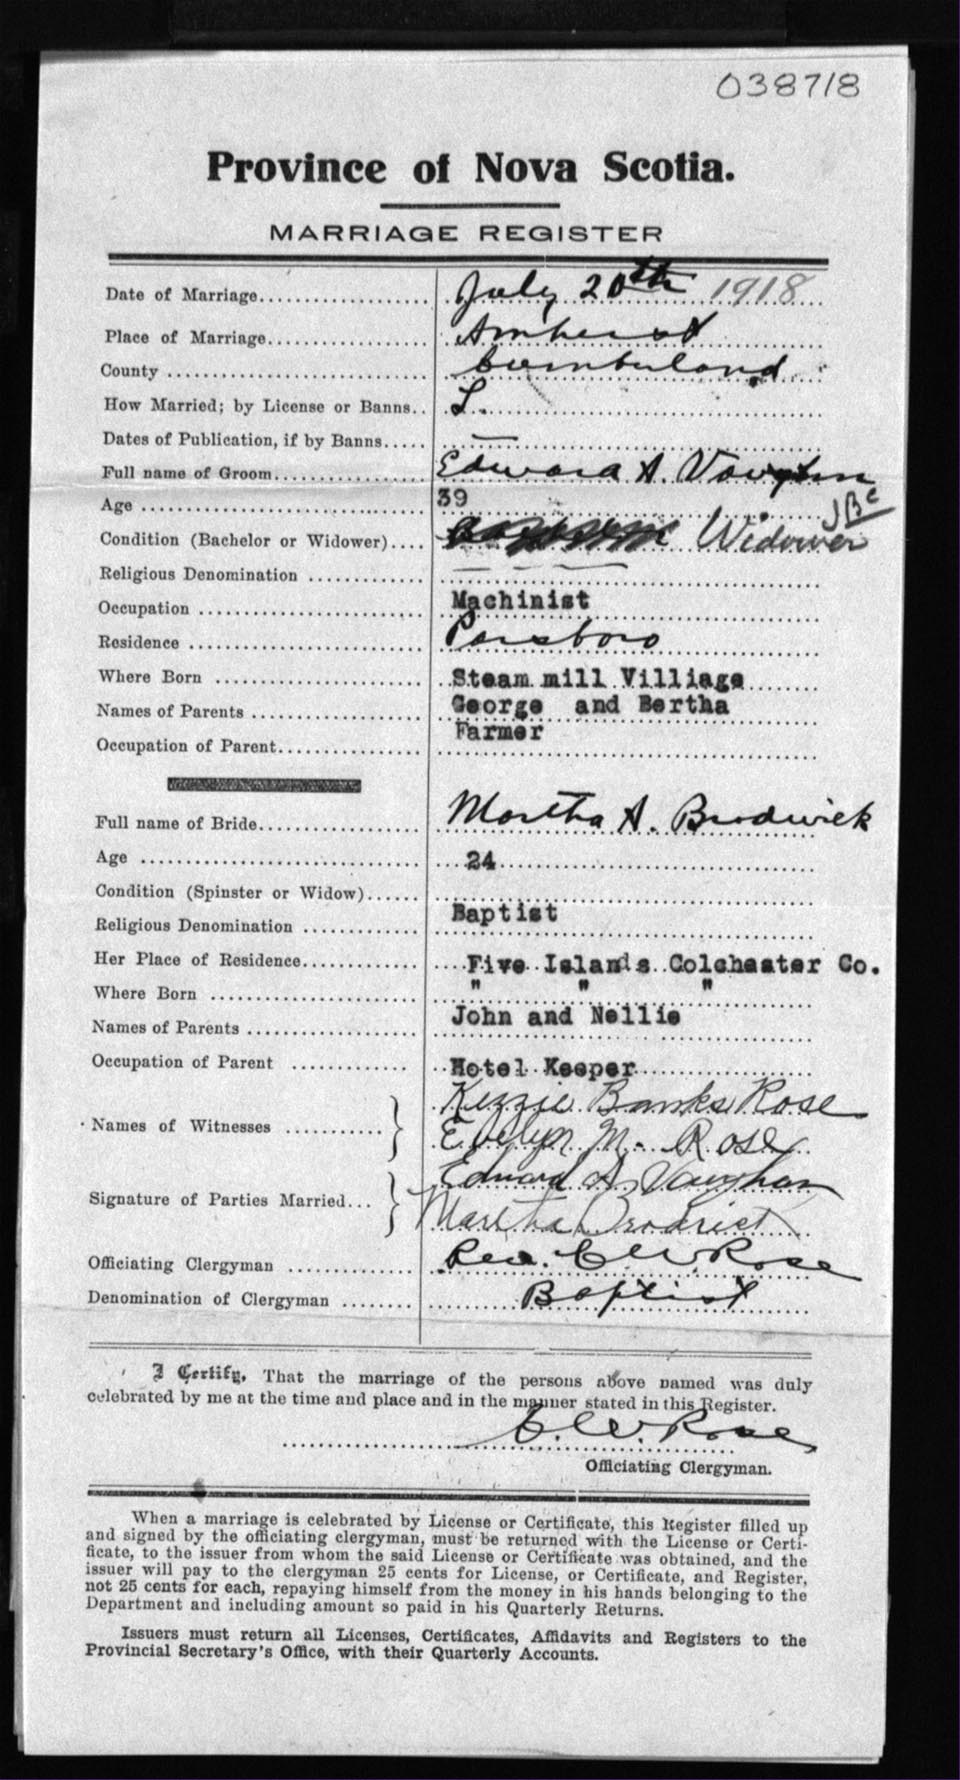 038718
Province of Nova Scotia.
MARRIAGE REGISTER
Date of Marriage.................. July 20th 1918
Place of Marriage................. Amherst
County ........................... Cumberland
How Married; by License or Banns.. L.
Dates of Publication, if by Banns..... —
Full name of Groom................ Edward A. Vaughn
Age .............................. 39
JBc
Condition (Bachelor or Widower).... Widower
Religious Denomination ............ — — —
Occupation ....................... Machinist
Residence ........................ Parsboro
Where Born ....................... Steam mill Villiage
Names of Parents ................. George and Bertha
Occupation of Parent.............. Farmer
Full name of Bride................ Martha A. Brodwick
Age .............................. 24
Condition (Spinster or Widow)......
Religious Denomination ............ Baptist
Her Place of Residence............ Five Islands Colchester Co.
Where Born ....................... " " "
Names of Parents ................. John and Nellie
Occupation of Parent ............. Hotel Keeper
Names of Witnesses ........... } Kezzie Banks Rose
Evelyn M. Rose
Signature of Parties Married... } Edward A. Vaughan
Martha Brodrick
Officiating Clergyman ............. Rev. C W Rose
Denomination of Clergyman ........ Baptist
I Certify, That the marriage of the persons above named was duly
celebrated by me at the time and place and in the manner stated in this Register.
C. W. Rose
Officiating Clergyman.
When a marriage is celebrated by License or Certificate, this Register filled up
and signed by the officiating clergyman, must be returned with the License or Certi-
ficate, to the issuer from whom the said License or Certificate was obtained, and the
issuer will pay to the clergyman 25 cents for License, or Certificate, and Register,
not 25 cents for each, repaying himself from the money in his hands belonging to the
Department and including amount so paid in his Quarterly Returns.
Issuers must return all Licenses, Certificates, Affidavits and Registers to the
Provincial Secretary's Office, with their Quarterly Accounts.